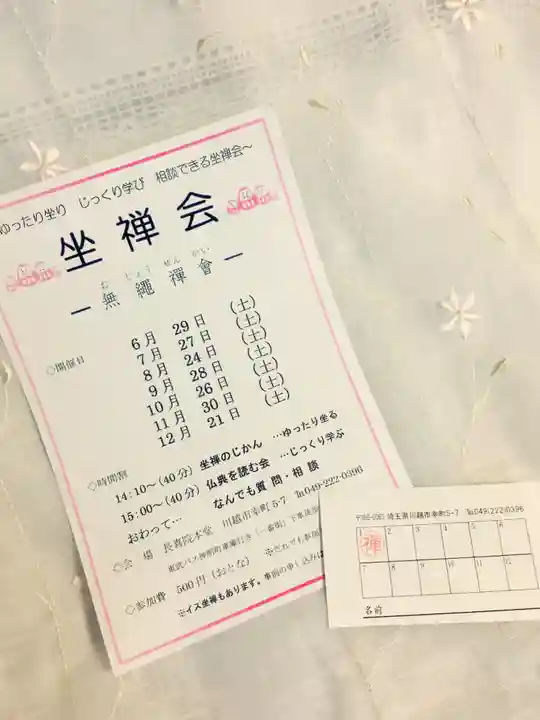 ~ゆったり坐り じっくり学び 相談できる坐禅会~
坐禅会
む じょう ぜん かい
― 無繩禪會 ―
◇開催日
6月 29日 (土)
7月 27日 (土)
8月 24日 (土)
9月 28日 (土)
10月 26日 (土)
11月 30日 (土)
12月 21日 (土)
◇時間割
14:10~(40分) 坐禅のじかん …ゆったり坐る
15:00~(40分) 仏典を読む会 …じっくり学ぶ
おわって… なんでも質問・相談
◇会 場 長喜院本堂 川越市幸町5-7 ℡049-222-0396
◇参加費 500円(おとな)
※イス坐禅もあります。事前の申し込みは
埼玉県川越市幸町5-7 ℡049(222)0396
1 2 3 4 5 6
禅
7 8 9 10 11 12
名前